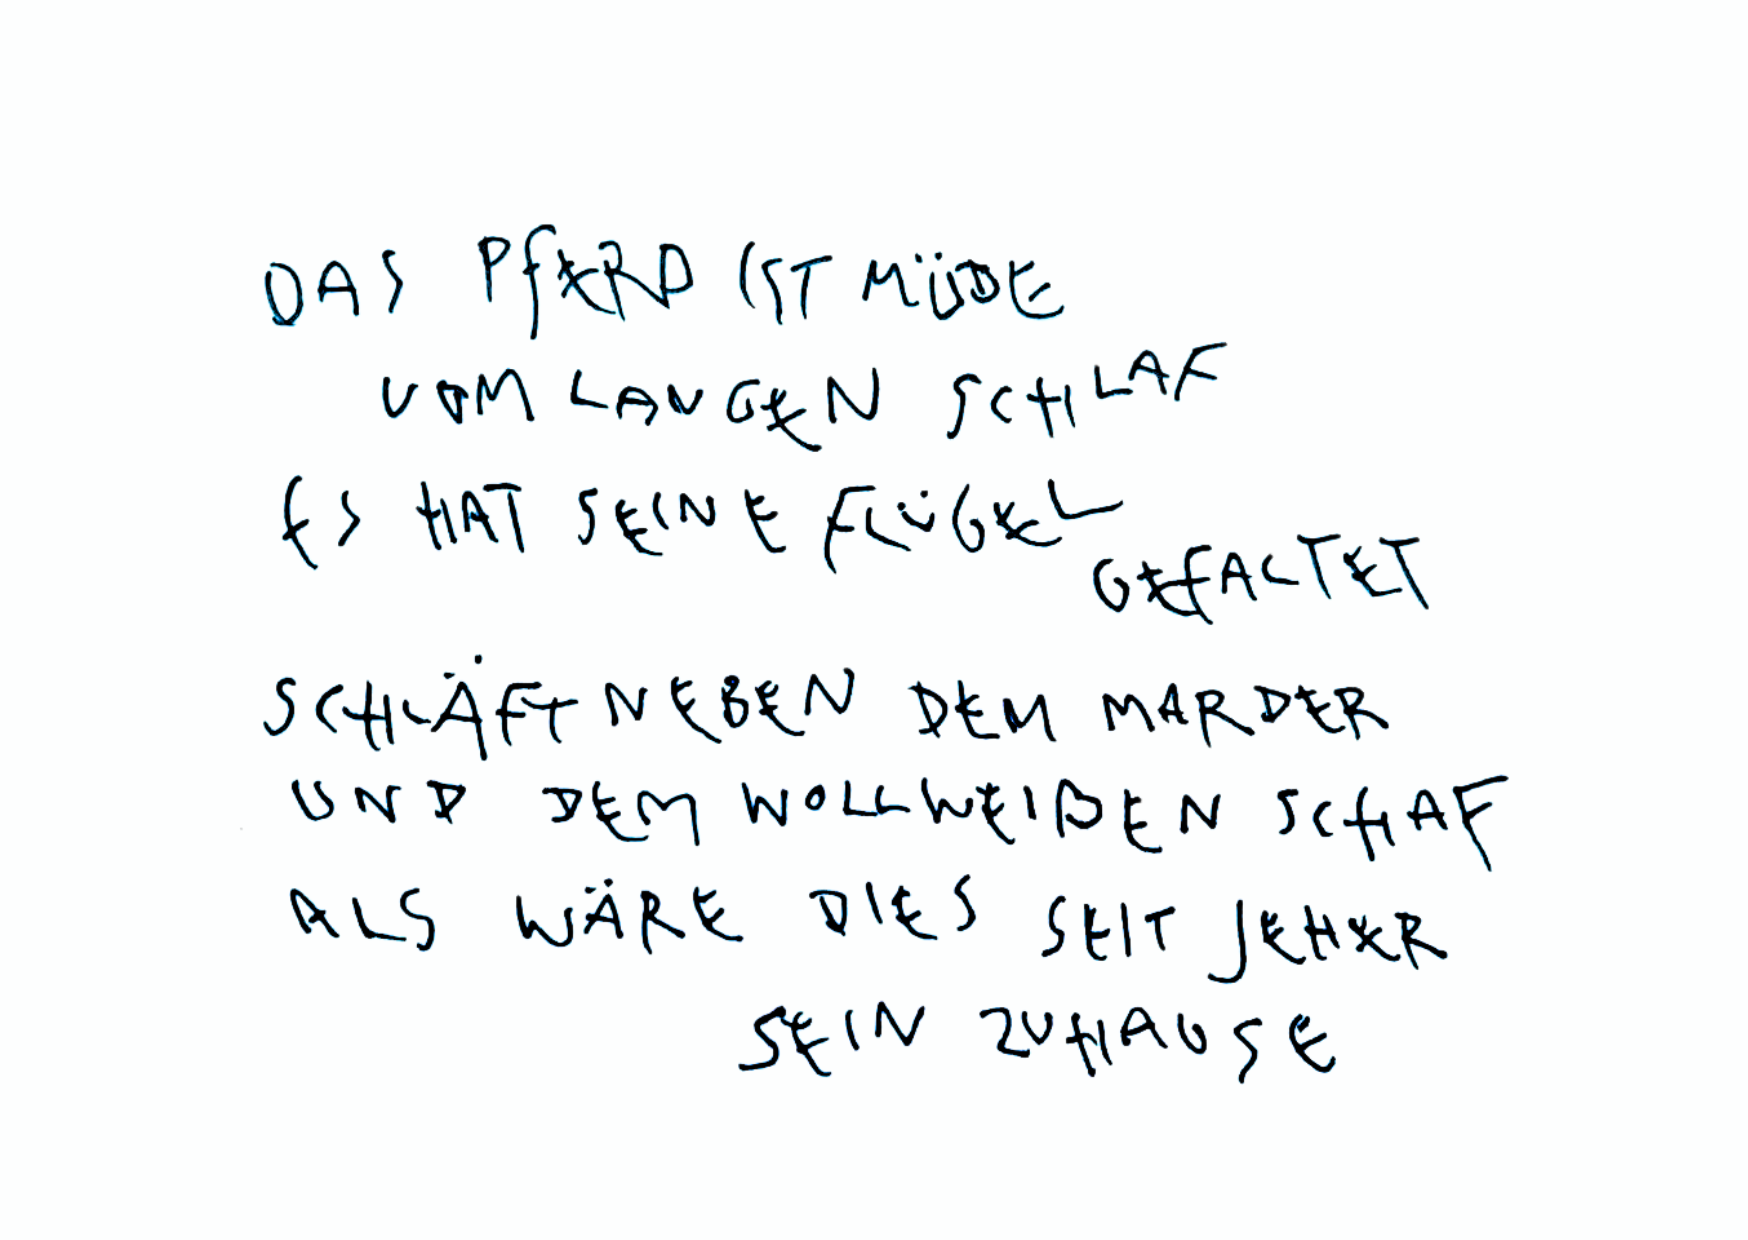 DAS PFERD IST MÜDE
VOM LANGEN SCHLAF
ES HAT SEINE FLÜGEL
GEFALTET
SCHLÄFT NEBEN DEM MARDER
UND DEM WOLLWEIßEN SCHAF
ALS WÄRE DIES SEIT JEHER
SEIN ZUHAUSE